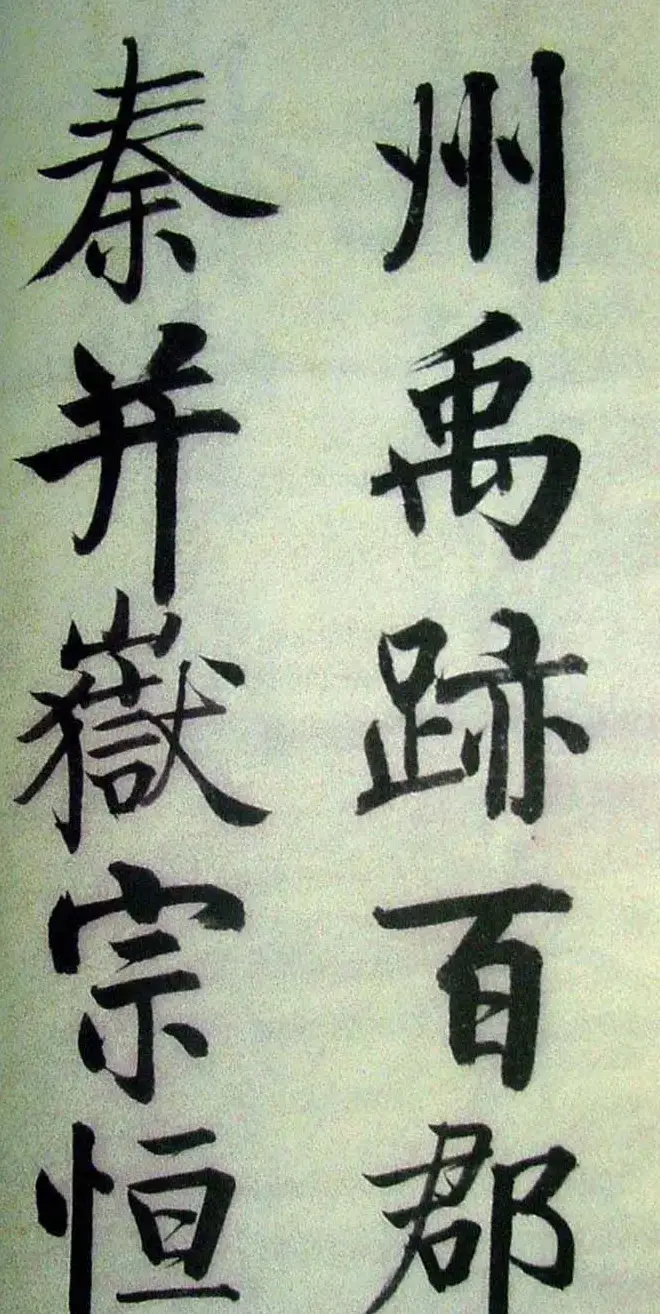 州禹跡百郡
秦并嶽宗恒